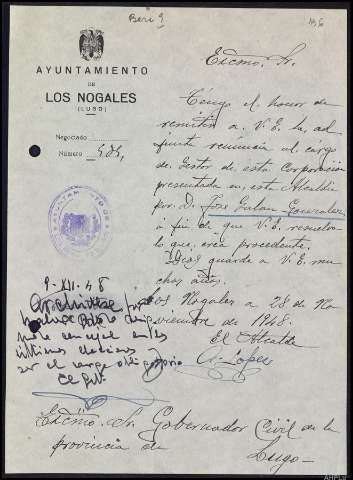 Beri 9
AYUNTAMIENTO
DE
LOS NOGALES
(LUGO)
Negociado
Número 484,
Excmo. Sr.
Tengo el honor de
remitir a V.E. la ad
junta renuncia al cargo
de Gestor de esta Corporación
presentada en esta Alcaldía
por D. José González
a fin de que V.E. resuelva
lo que crea procedente.
Dios guarde a V.E. mu
chos años.
Los Nogales a 28 de No
viembre de 1948.
El Alcalde
A. López
9-XII-48
Archívese por
concejal en las
últimas elecciones
ser el cargo obligatorio
Excmo. Sr. Gobernador Civil de la
provincia de
Lugo-
AHPLu